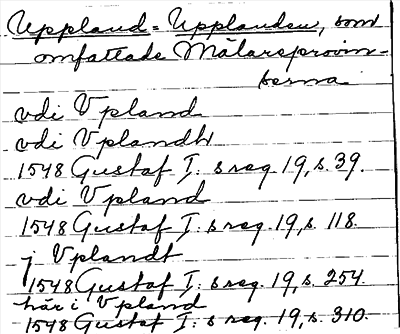 Uppland = Upplanden, som
omfattade Mälareprovin-
serna
vdi Vpland
vdi Vplandh
1548 Gustaf I: s reg. 19, s. 39.
vdi Vpland
1548 Gustaf I: s reg. 19, s. 118.
j Vplandt
1548 Gustaf I: s reg. 19, s. 254.
här i Vpland
1548 Gustaf I: s reg. 19, s. 310.